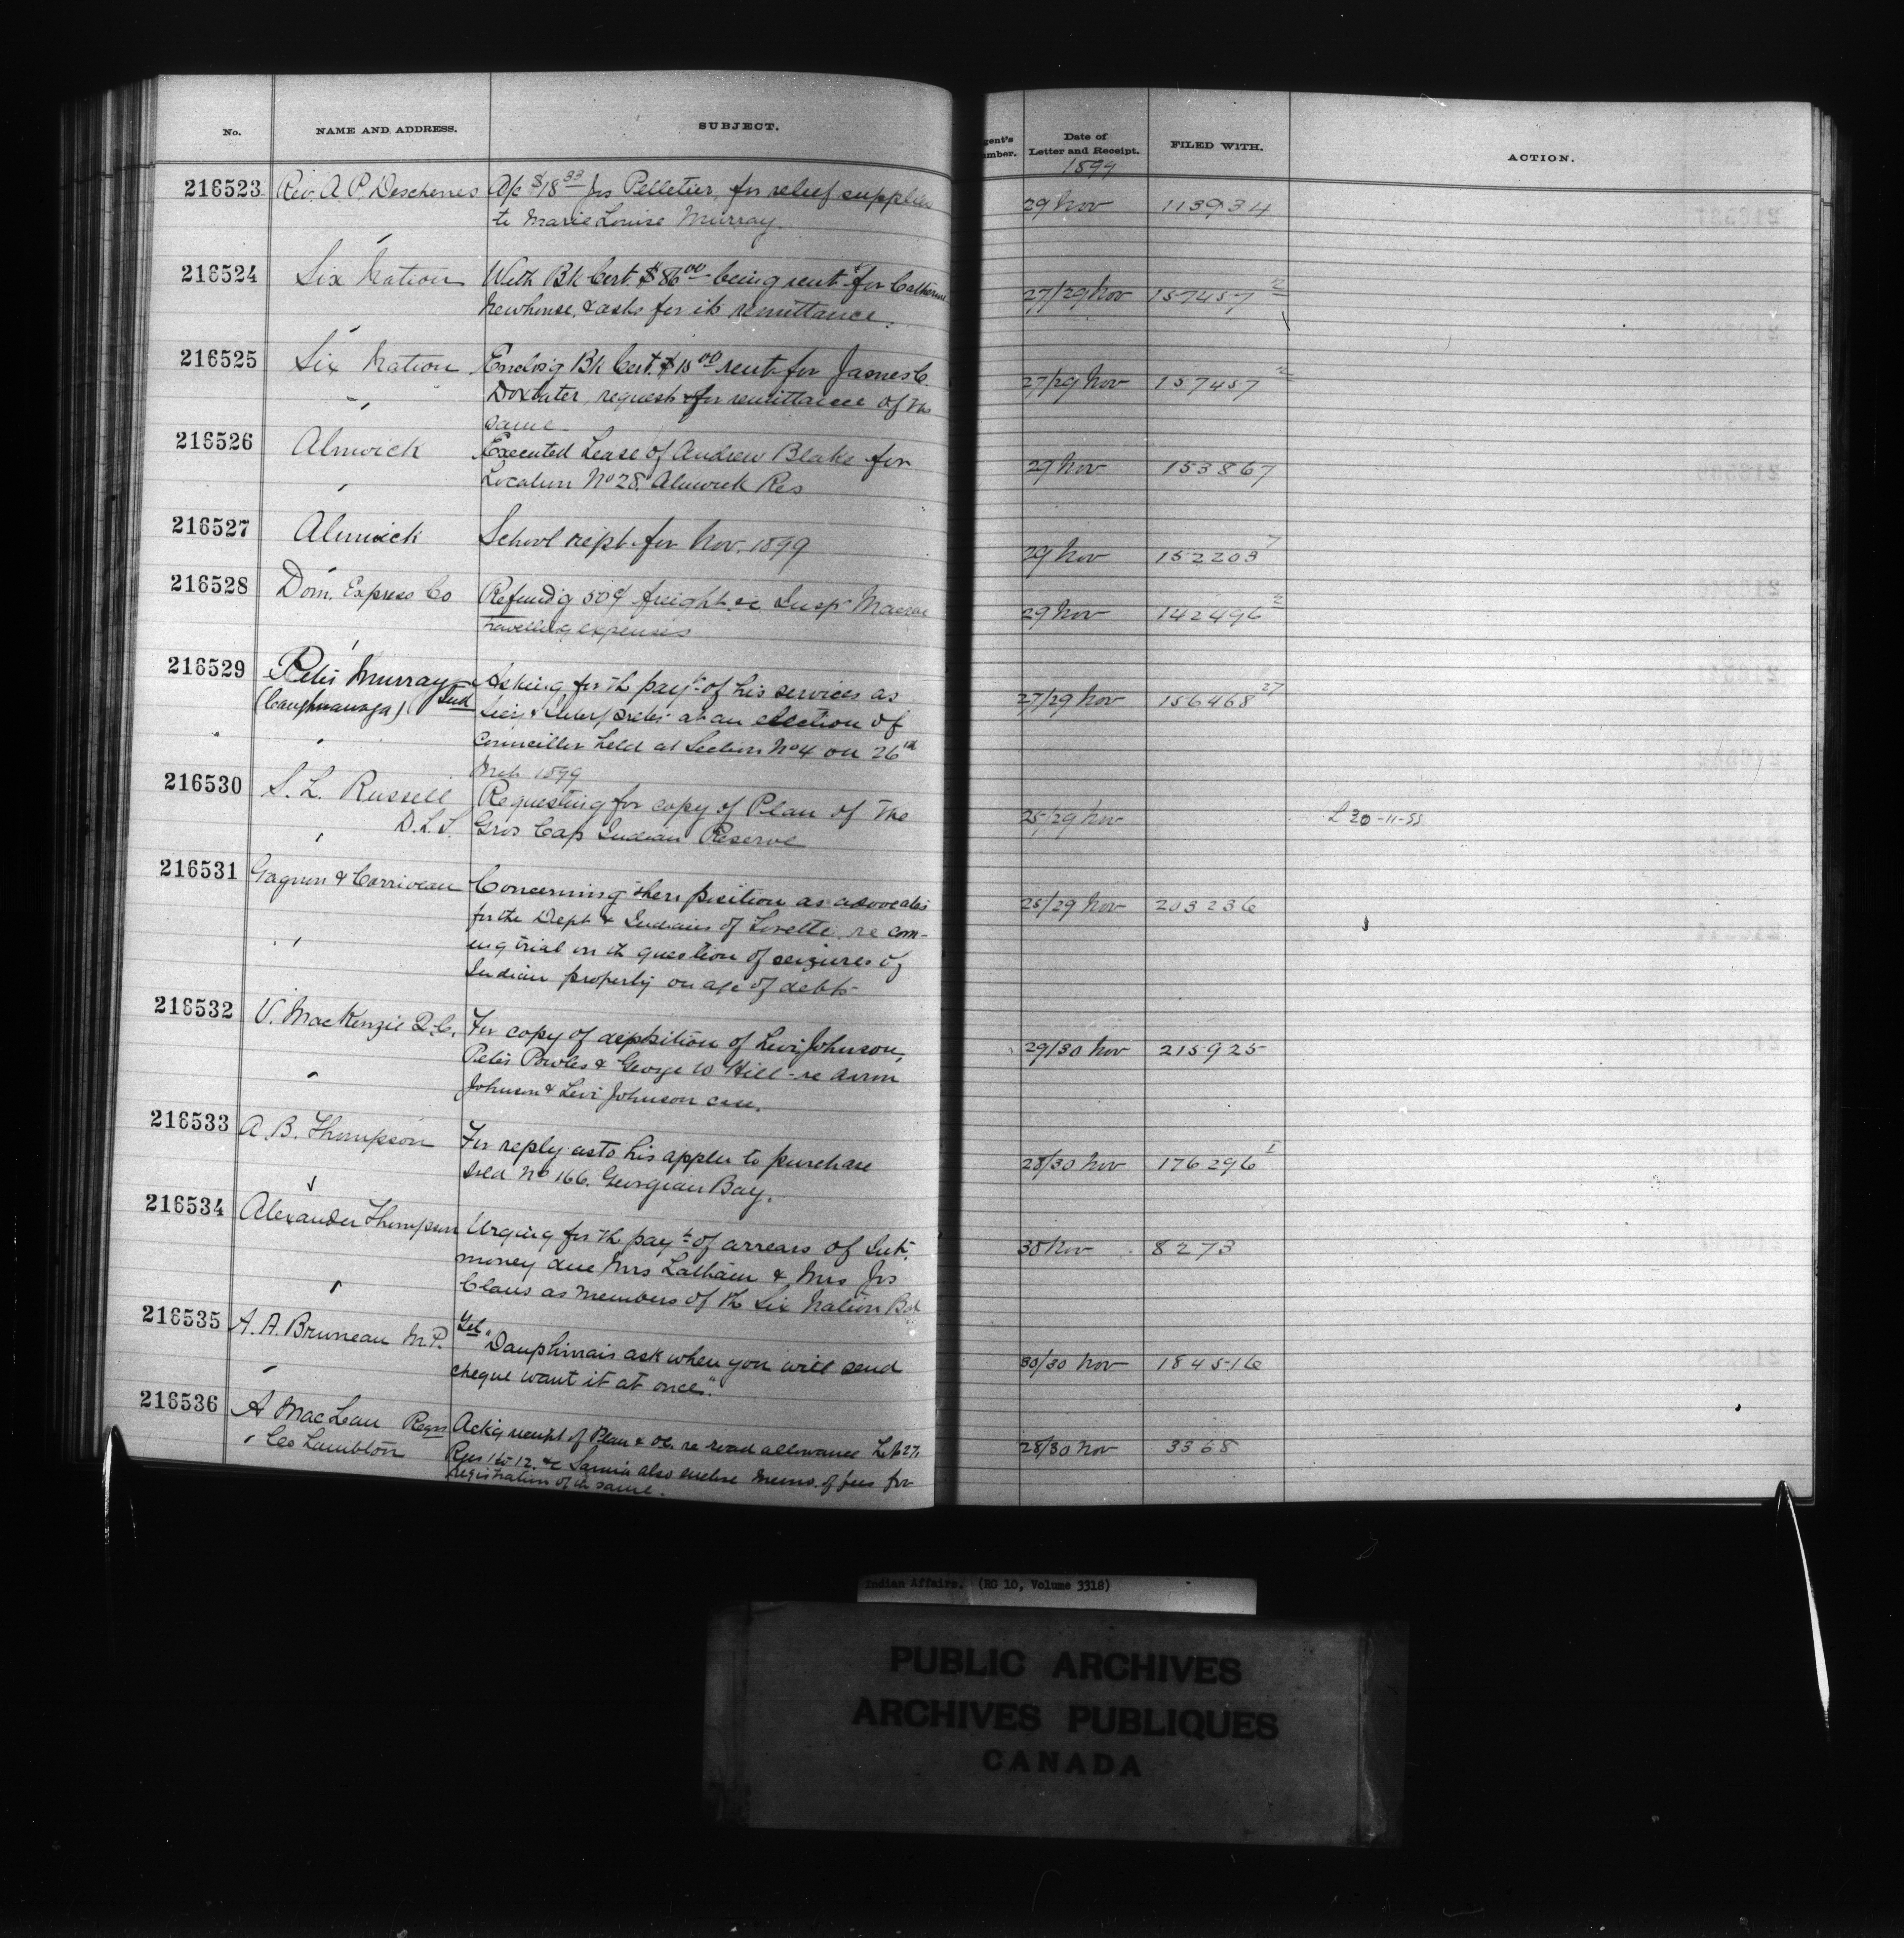 No. NAME AND ADDRESS. SUBJECT. gent's umber. Date of Letter and Receipt. FILED WITH. ACTION.
1899
216523 Rev. A. P. Deschenes A/c $18 33 Jos Pelletier, for relief supplies 29 Nov 113934
to Marie Louise Murray.
216524 Six Nation With Bk Cert. $86 00 being rent for Catherine 27/29 Nov 157457 2
Newhouse, & asks for its remittance.
216525 Six Nation Enclos'g Bk Cert. $15 00 rent for James C. 27/29 Nov 157457 2
Doxtater, request for remittance of the
same
216526 Alnwick Executed Lease of Andrew Blake for 29 Nov 153867
Location No 28. Alnwick Res
216527 Alnwick School rept for Nov. 1899 29 Nov 152203 7
216528 Dom. Express Co Refund'g 50¢ freight re Insp. Macrae 29 Nov 142496 2
travelling expenses
216529 Peter Murray Asking for th payt of his services as 27/29 Nov 156468 27
(Caughnawaga) Ind Secy & Interpreter at an election of
Councillor held at Section No 4 on 26th
Mch 1899
216530 S. L. Russell Requesting for copy of Plan of the 25/29 Nov L 30-11-99
D.L.S. Gros Cap Indian Reserve
216531 Gagnon & Corriveau Concerning their position as advocates 28/29 Nov 203236
for the Dept & Indians of Lorette re com-
ing trial on th question of seizures of
Indian property on a/c of debts
216532 V. MacKenzie Q.C. For copy of deposition of Levi Johnson, 29/30 Nov 215925
Peter Powles & George W Hill - re
Johnson & Levi Johnson case.
216533 A. B. Thompson For reply as to his appln to purchase 28/30 Nov 176296 1
Isld No 166. Georgian Bay.
216534 Alexander Thompson Urging for th payt of arrears of Int. 30 Nov 8273
money due Mrs Latham & Mrs Jos
Claus as members of th Six Nation Bd
216535 A. A. Bruneau M.P. Tel "Dauphinais ask when you will send 30/30 Nov 184516
cheque want it at once."
216536 A MacLean Regr Ackg receipt of Plan & OC. re road allowance Lot 27, 28/30 Nov 3368
Co Lambton Rges 1 to 12. Sarnia also enclose Memo. of fees for
registration of th same.
Indian Affairs. (RG 10, Volume 3318)
PUBLIC ARCHIVES
ARCHIVES PUBLIQUES
CANADA